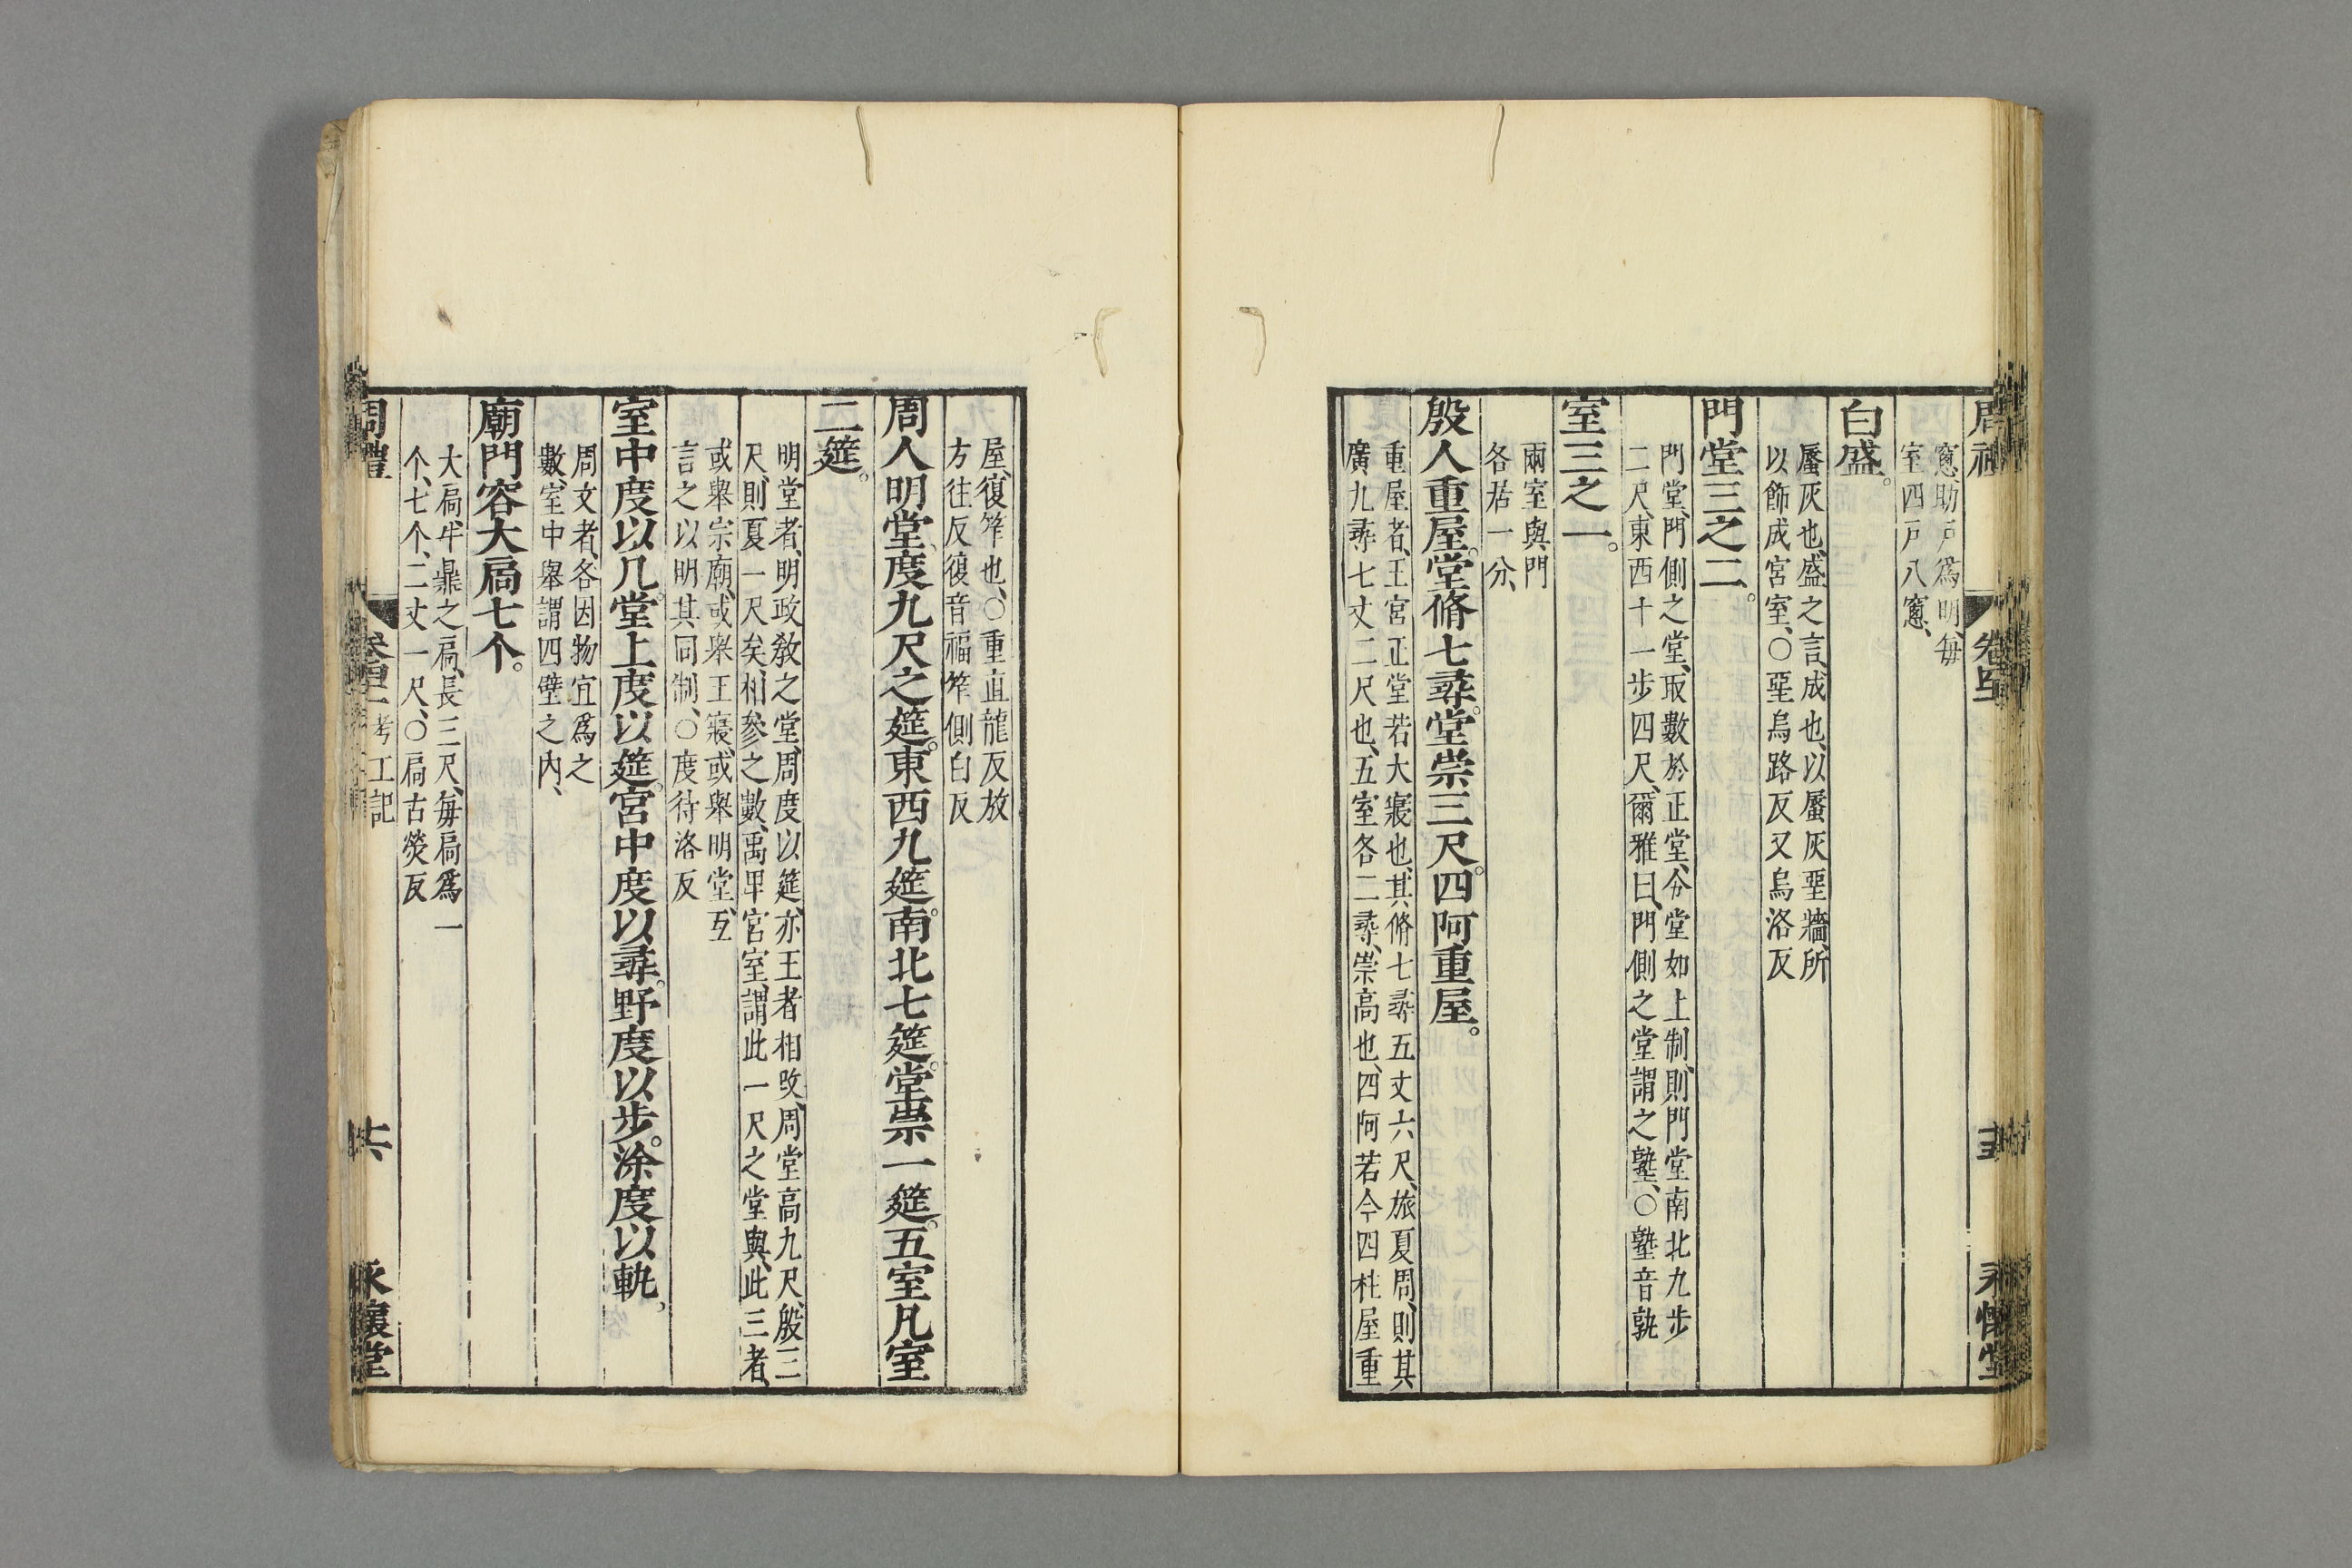 窻助戸爲明、每
室四戸八窻、
白盛。
蜃灰也、盛之言成也、以蜃灰堊牆、所
以飾成宮室、○堊烏路反又烏洛反
門堂三之二。
門堂、門側之堂、取數於正堂、令堂如上制、則門堂南北九步
二尺、東西十一步四尺、爾雅曰、門側之堂謂之塾、○塾音孰
室三之一。
兩室與門
各居一分、
殷人重屋。堂脩七尋。堂崇三尺。四阿重屋。
重屋者、王宮正堂若大寢也、其脩七尋五丈六尺、旅夏周、則其
廣九尋七丈二尺也、五室各二尋、崇高也、四阿若今四柱屋重
屋、復笮也、○重直龍反放
方往反復音福笮側白反
周人明堂。度九尺之筵。東西九筵。南北七筵。堂崇一筵。五室凡室
二筵。
明堂者、明政教之堂、周度以筵、亦王者相改、周堂高九尺、殷三
尺、則夏一尺矣、相參之數、禹卑宮室、謂此一尺之堂與、此三者、
或舉宗廟、或舉王寢、或舉明堂、互
言之以明其同制、○度待洛反
室中度以几。堂上度以筵。宮中度以尋。野度以步。涂度以軌。
周文者、各因物宜爲之
數、室中舉謂四壁之內、
廟門容大扃七个。
大扃牛鼎之扃、長三尺、每扃爲一
个、七个、二丈一尺、○扃古熒反
周禮 考工記 永懷堂